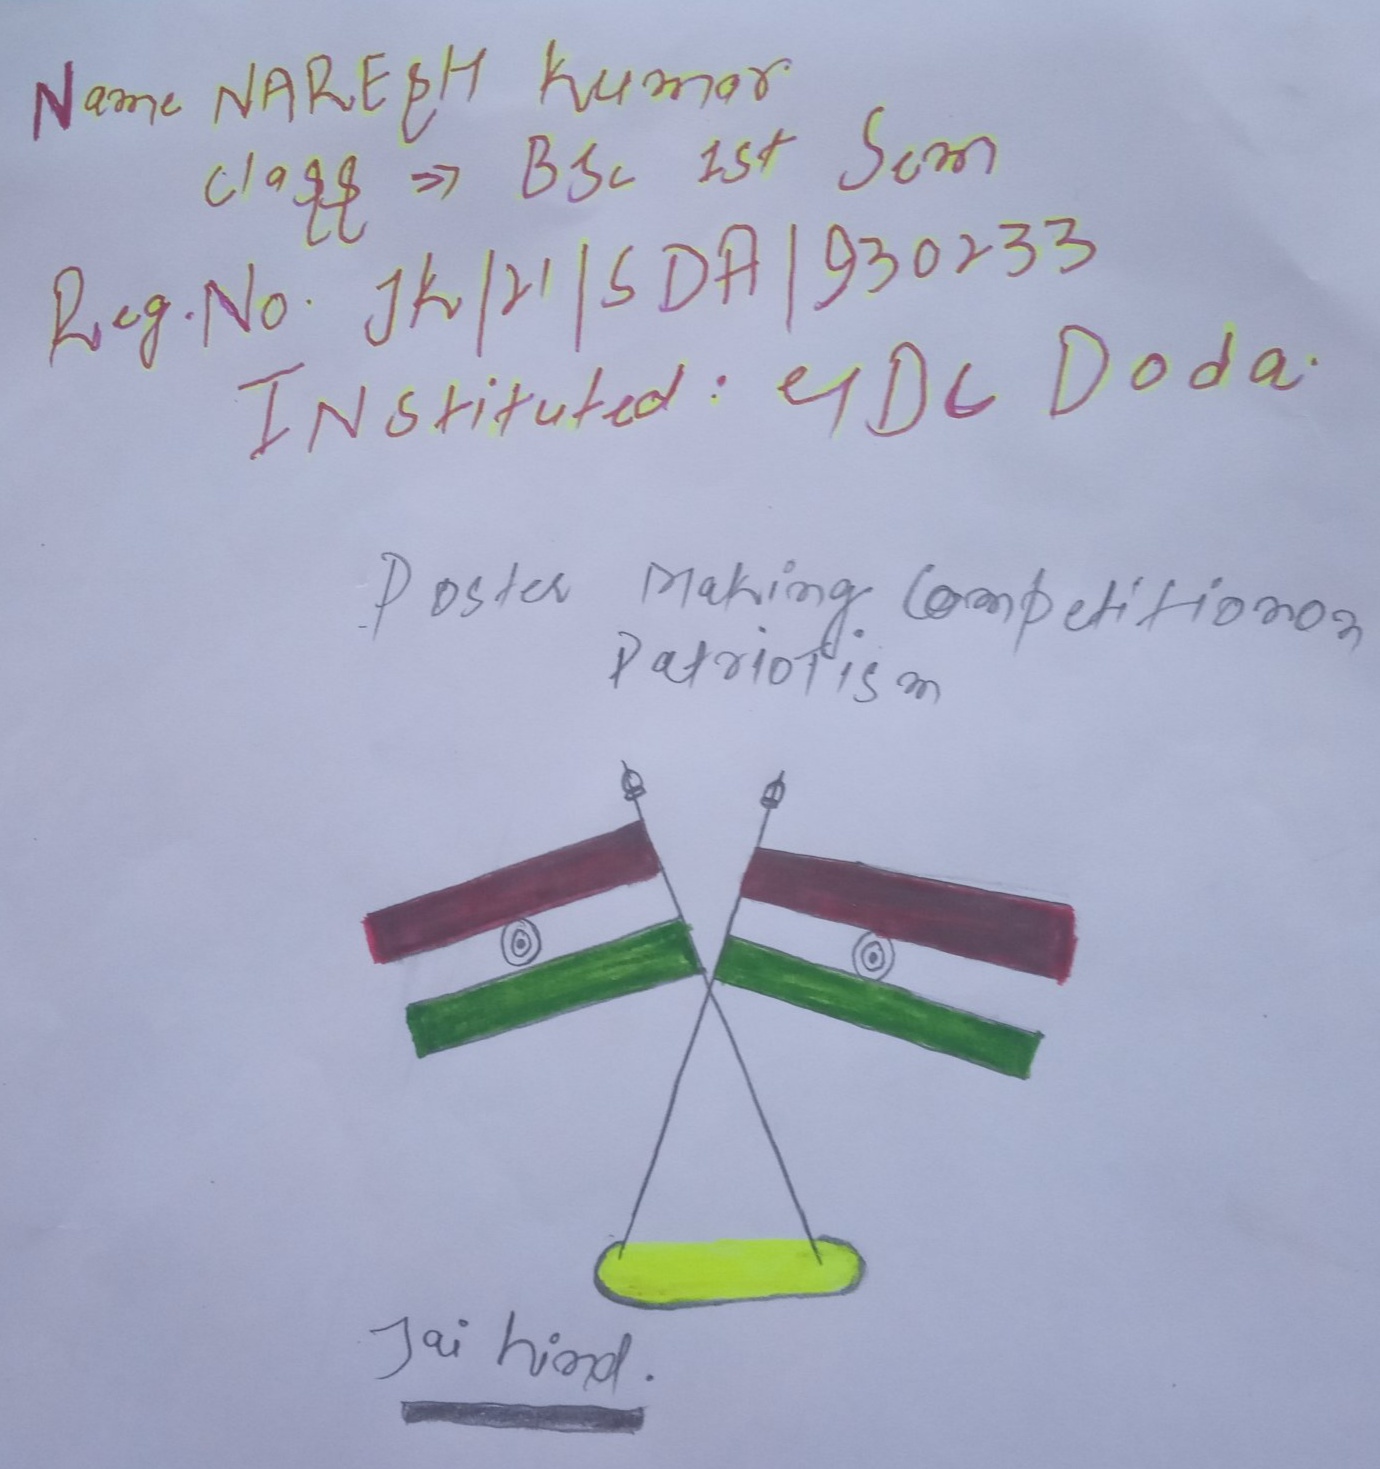 Name NARESH Kumar
Class ⇒ BSc 1st Sem
Reg.No. JK/21/SDA/930233
INstituted: GDC Doda.
Poster Making Competition on
Patriotism
Jai hind.